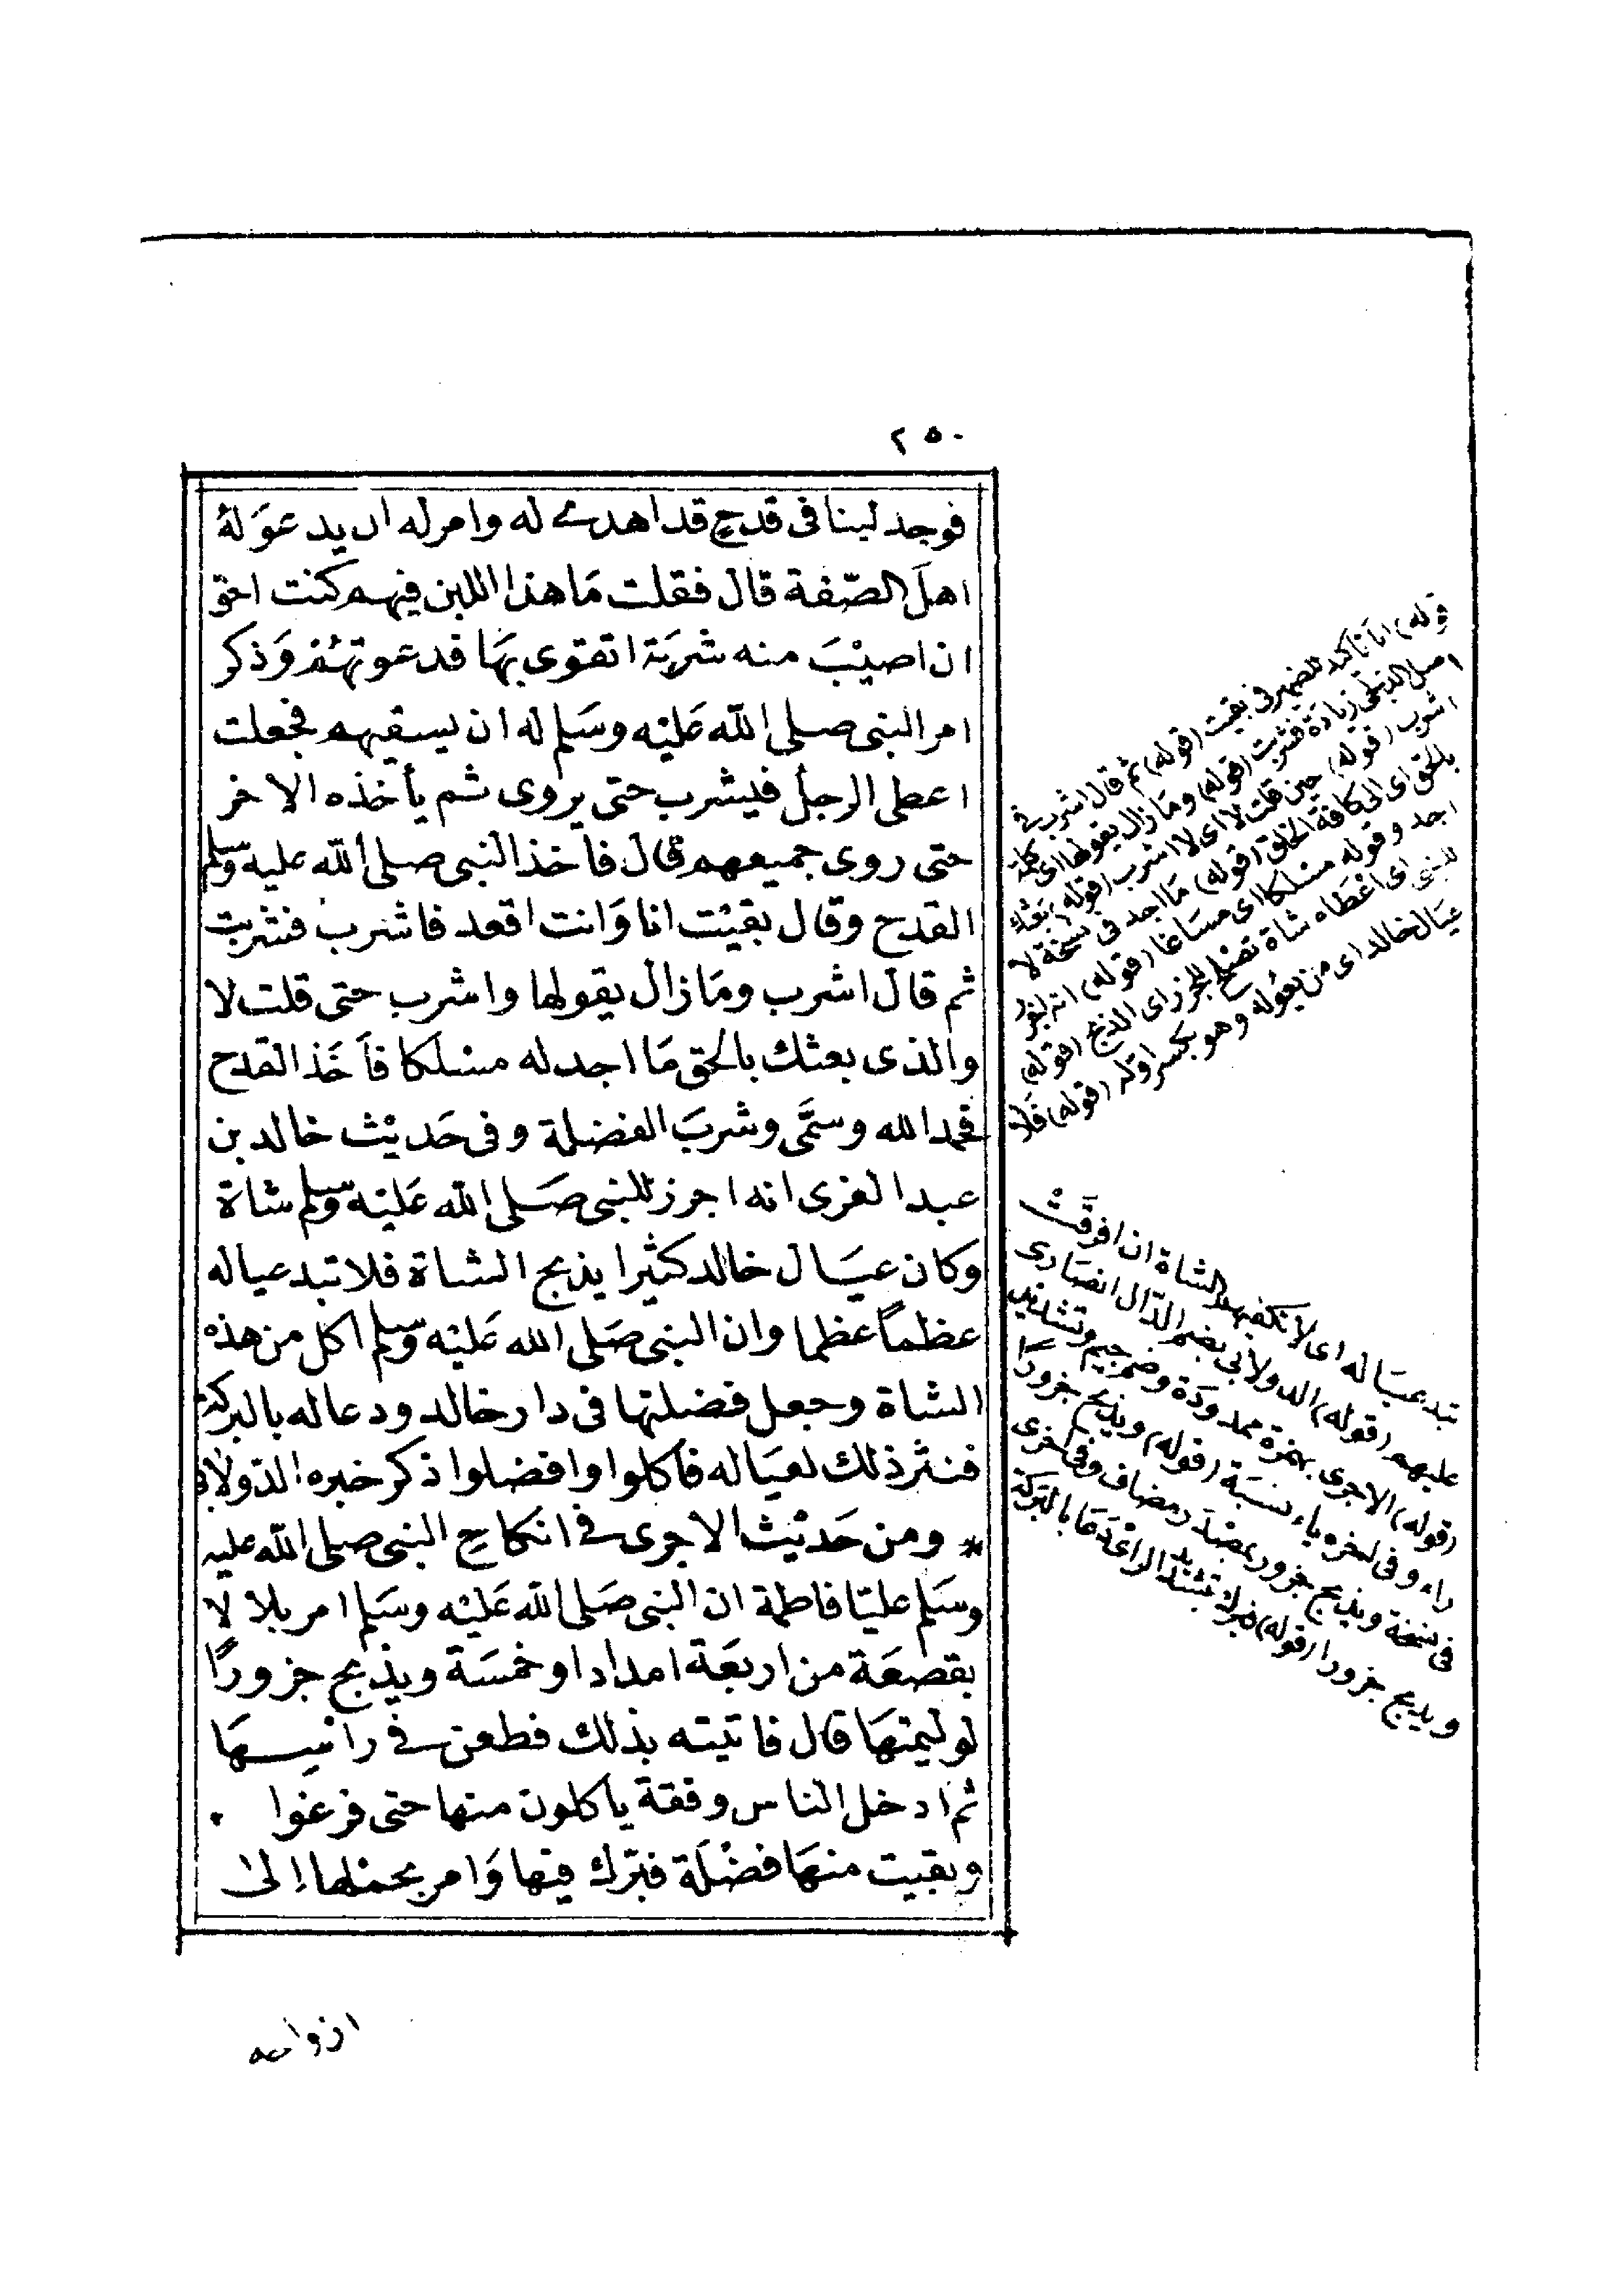 ٢٥٠
فوجد لبنا في قدح قد اهدى له وامر له ان يدعو له
اهل الصّفة قال فقلت مَا هذا اللبن فيهم كنت احق
ان اصيْبَ منه شربَة اتقوى بهَا فدعوتهُمْ وَذكر
امر النبى صلى الله عَليْه وسَلم له ان يسقيهم فجعلت
اعطى الرجل فيشرب حتى يروى ثم يأخذه الاخر
حتى روى جميعهم قال فأخذ النبى صلى الله عليه وسلم
القدح وقال بقيْت انا وَانت اقعد فاشرب فشربت
ثم قال اشرب ومَا زال يقولها واشرب حتى قلت لا
والذى بعثك بالحق مَا اجد له مسْلكا فأخَذ القدح
فحمد الله وسمَّى وشربَ الفضلة وفى حَديْث خالد بن
عبد العزى انه اجزر للنبى صَلى الله عَليْه وسلم شاة
وكان عيَال خالد كثيْرا يذبح الشاة فلا تبد عياله
عظماً عظما وان النبى صَلى الله عَليْه وسلم اكل من هذه
الشاة وجعل فضلتها فى دار خالد ودعا له بالبركة
فنثر ذلك لعيَاله فأكلوا وافضلوا ذكر خبره الدّولابى
* ومن حَديْث الاجرى فى انكاح النبى صلى الله عليه
وسَلم عليّا فاطمة ان النبى صَلى الله عَليْه وسَلم امر بلالا
بقصعَة من اربعَة امداد او خمسَة ويذبح جزورًا
لوليمتهَا قال فاتيته بذلك فطعن فى رأسهَا
ثم ادخل الناس رفقة رفقة ياكلون منها حتى فرغوا
وبقيت منهَا فضْلَة فبَرّك فيْها وَامر بحمْلها الى
ازواجه
قوله) انا تأكيد للضمير فى بقيت (قوله) ثم قال اشرب فى
اصل الدلجى زيادة فشربت (قوله) ومَا زال يقولها اى كلمة
اشرب (قوله) حين قلت لا اى لا اشرب (قوله) بعثك
بالحق اى الى كافة الخلق (قوله) مَا اجد فى نسخة لا
اجد وقوله مسلكا اى مسَاغا (قوله) انه اجزر
للنبى اى اعْطاه شاة تصْلح للجزر اى الذبح (قوله)
عيَال خالد اى من يعُوله وهو بكسر اوّله (قوله) فَلا
تبد عيَاله اى لا تكفيهم الشاة ان افرقَتْ
عليهم (قوله) الدولابى بضم الدّال انصَارى
(قوله) الاجرى بهمزة ممدودَة وضم جيم وتشديد
راء وفى اخره ياء نسبَة (قوله) ويذبح جزورًا
فى نسخة ويذبح جزور بمضاف وفى اخرى
ويذبح جزورا (قوله) فبرك بتشديد الراء اى دَعَا بالبَركة